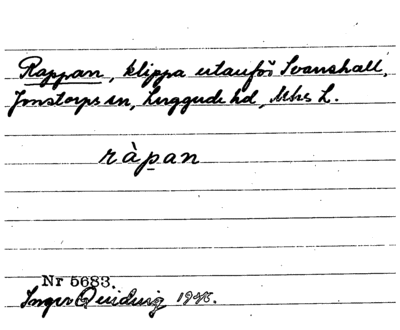 Rappan, klippa utanför Svanshall,
Jonstorps sn, Luggude hd, Mhs L.
ràpan
Nr 5683.
Inger Quiding